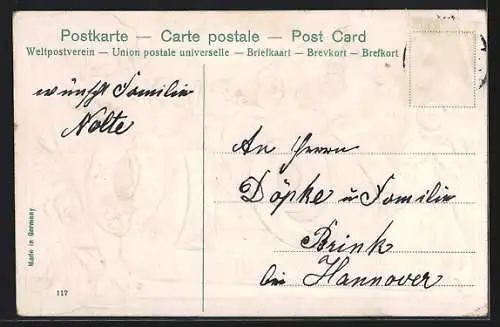 Postkarte — Carte postale — Post Card
Weltpostverein — Union postale universelle — Briefkaart — Brevkort — Brefkort
wünscht Familie
Nolte
An Herrn
Döpke u Familie
Brink
bei Hannover
Made in Germany
117